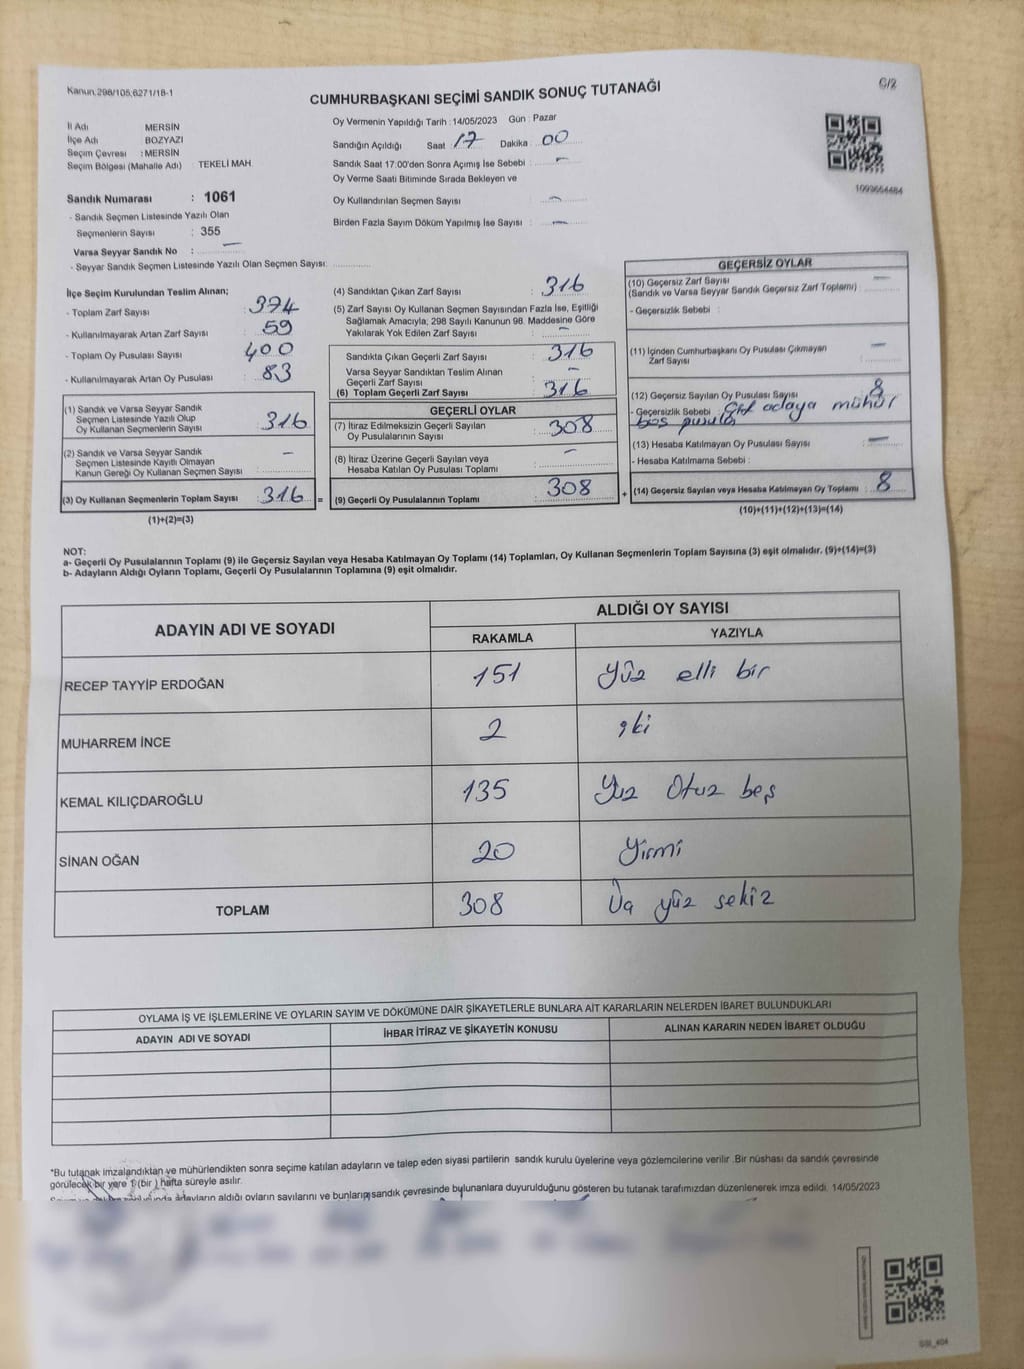 Kanun,298/105;6271/18-1
C/2
CUMHURBAŞKANI SEÇİMİ SANDIK SONUÇ TUTANAĞI
İl Adı MERSİN
İlçe Adı BOZYAZI
Seçim Çevresi : MERSİN
Seçim Bölgesi (Mahalle Adı) : TEKELİ MAH.
Sandık Numarası : 1061
- Sandık Seçmen Listesinde Yazılı Olan
Seçmenlerin Sayısı : 355
Varsa Seyyar Sandık No : —
- Seyyar Sandık Seçmen Listesinde Yazılı Olan Seçmen Sayısı:
Oy Vermenin Yapıldığı Tarih : 14/05/2023 Gün : Pazar
Sandığın Açıldığı Saat : 17 Dakika 00
Sandık Saat 17:00'den Sonra Açımış İse Sebebi : —
Oy Verme Saati Bitiminde Sırada Bekleyen ve
Oy Kullandırılan Seçmen Sayısı : —
Birden Fazla Sayım Döküm Yapılmış İse Sayısı : —
1099664484
İlçe Seçim Kurulundan Teslim Alınan;
- Toplam Zarf Sayısı : 374
- Kullanılmayarak Artan Zarf Sayısı : 59
- Toplam Oy Pusulası Sayısı : 400
- Kullanılmayarak Artan Oy Pusulası : 83
(1) Sandık ve Varsa Seyyar Sandık
Seçmen Listesinde Yazılı Olup
Oy Kullanan Seçmenlerin Sayısı : 316
(2) Sandık ve Varsa Seyyar Sandık
Seçmen Listesinde Kayıtlı Olmayan
Kanun Gereği Oy Kullanan Seçmen Sayısı : —
(3) Oy Kullanan Seçmenlerin Toplam Sayısı : 316 =
(1)+(2)=(3)
(4) Sandıktan Çıkan Zarf Sayısı : 316
(5) Zarf Sayısı Oy Kullanan Seçmen Sayısından Fazla İse, Eşitliği
Sağlamak Amacıyla, 298 Sayılı Kanunun 98. Maddesine Göre
Yakılarak Yok Edilen Zarf Sayısı : —
Sandıkta Çıkan Geçerli Zarf Sayısı : 316
Varsa Seyyar Sandıktan Teslim Alınan
Geçerli Zarf Sayısı : —
(6) Toplam Geçerli Zarf Sayısı : 316
GEÇERLİ OYLAR
(7) İtiraz Edilmeksizin Geçerli Sayılan
Oy Pusulalarının Sayısı : 308
(8) İtiraz Üzerine Geçerli Sayılan veya
Hesaba Katılan Oy Pusulası Toplamı : —
(9) Geçerli Oy Pusulalarının Toplamı : 308 +
GEÇERSİZ OYLAR
(10) Geçersiz Zarf Sayısı
(Sandık ve Varsa Seyyar Sandık Geçersiz Zarf Toplamı) : —
- Geçersizlik Sebebi :
(11) İçinden Cumhurbaşkanı Oy Pusulası Çıkmayan
Zarf Sayısı : —
(12) Geçersiz Sayılan Oy Pusulası Sayısı : 8
- Geçersizlik Sebebi : Çift adaya mühür
boş pusula
(13) Hesaba Katılmayan Oy Pusulası Sayısı : —
- Hesaba Katılmama Sebebi :
(14) Geçersiz Sayılan veya Hesaba Katılmayan Oy Toplamı : 8
(10)+(11)+(12)+(13)=(14)
NOT:
a- Geçerli Oy Pusulalarının Toplamı (9) ile Geçersiz Sayılan veya Hesaba Katılmayan Oy Toplamı (14) Toplamları, Oy Kullanan Seçmenlerin Toplam Sayısına (3) eşit olmalıdır. (9)+(14)=(3)
b- Adayların Aldığı Oyların Toplamı, Geçerli Oy Pusulalarının Toplamına (9) eşit olmalıdır.
ADAYIN ADI VE SOYADI ALDIĞI OY SAYISI
RAKAMLA YAZIYLA
RECEP TAYYİP ERDOĞAN 151 Yüz elli bir
MUHARREM İNCE 2 iki
KEMAL KILIÇDAROĞLU 135 Yüz Otuz beş
SİNAN OĞAN 20 Yirmi
TOPLAM 308 Üç yüz sekiz
OYLAMA İŞ VE İŞLEMLERİNE VE OYLARIN SAYIM VE DÖKÜMÜNE DAİR ŞİKAYETLERLE BUNLARA AİT KARARLARIN NELERDEN İBARET BULUNDUKLARI
ADAYIN ADI VE SOYADI İHBAR İTİRAZ VE ŞİKAYETİN KONUSU ALINAN KARARIN NEDEN İBARET OLDUĞU
*Bu tutanak imzalandıktan ve mühürlendikten sonra seçime katılan adayların ve talep eden siyasi partilerin sandık kurulu üyelerine veya gözlemcilerine verilir .Bir nüshası da sandık çevresinde
görülecek bir yere 1 (bir ) hafta süreyle asılır.
adayların aldığı oyların sayılarını ve bunların sandık çevresinde bulunanlara duyurulduğunu gösteren bu tutanak tarafımızdan düzenlenerek imza edildi. 14/05/2023